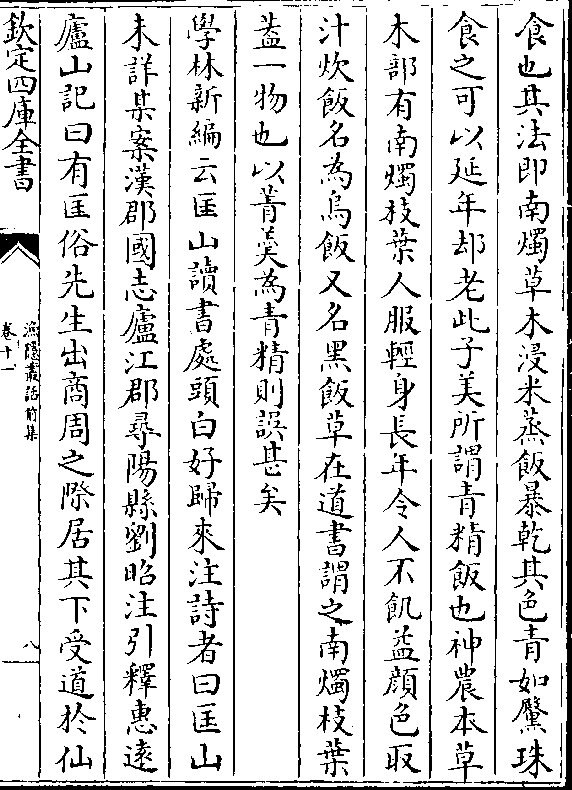 食也其法即南燭草木浸米蒸飯暴乾其色青如黳珠
食之可以延年却老此子美所謂青精飯也神農本草
木部有南燭枝葉人服輕身長年令人不飢益顔色取
汁炊飯名為烏飯又名黑飯草在道書謂之南燭枝葉
葢一物也以菁羮為青精則誤甚矣
學林新編云匡山讀書處頭白好歸來注詩者曰匡山
未詳某案漢郡國志廬江郡尋陽縣劉昭注引釋惠遠
廬山記曰有匡俗先生出商周之際居其下受道於仙
欽定四庫全書
漁隱叢話前集
卷十一
八